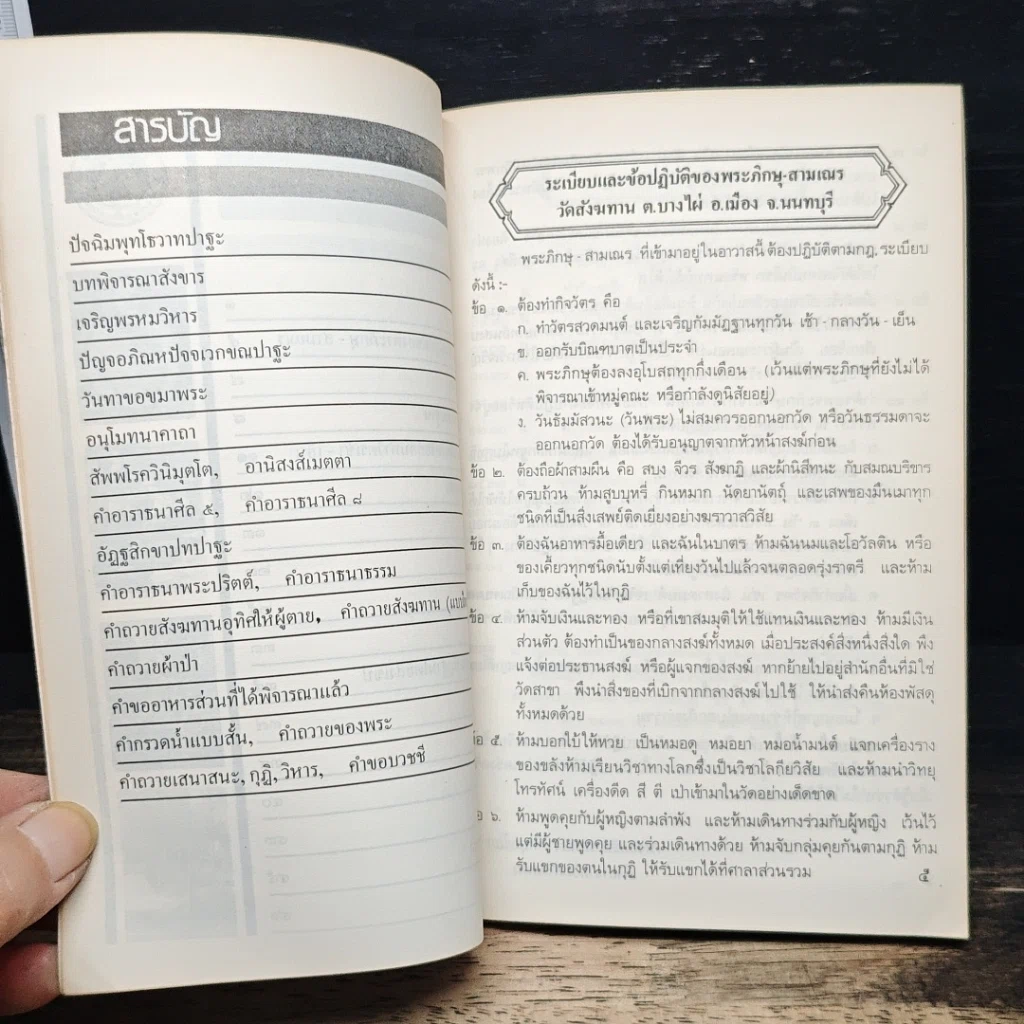 สารบัญ
ปัจฉิมพุทโธวาทปาฐะ
บทพิจารณาสังขาร
เจริญพรหมวิหาร
ปัญจอภิณหปัจจเวกขณปาฐะ
วันทาขอขมาพระ
อนุโมทนาคาถา
สัพพโรควินิมุตโต, อานิสงส์เมตตา
คำอาราธนาศีล ๕, คำอาราธนาศีล ๘
อัฏฐสิกขาปทปาฐะ
คำอาราธนาพระปริตต์, คำอาราธนาธรรม
คำถวายสังฆทานอุทิศให้ผู้ตาย, คำถวายสังฆทาน
คำถวายผ้าป่า
คำขออาหารส่วนที่ได้พิจารณาแล้ว
คำกรวดน้ำแบบสั้น, คำถวายของพระ
คำถวายเสนาสนะ, กุฏิ, วิหาร, คำขอบวชชี
ระเบียบและข้อปฏิบัติของพระภิกษุ-สามเณร
วัดสังฆทาน ต.บางไผ่ อ.เมือง จ.นนทบุรี
พระภิกษุ - สามเณร ที่เข้ามาอยู่ในอาวาสนี้ ต้องปฏิบัติตามกฎ, ระเบียบ
ดังนี้ :-
ข้อ ๑. ต้องทำกิจวัตร คือ
ก. ทำวัตรสวดมนต์ และเจริญกัมมัฏฐานทุกวัน เช้า - กลางวัน - เย็น
ข. ออกรับบิณฑบาตเป็นประจำ
ค. พระภิกษุต้องลงอุโบสถทุกกึ่งเดือน (เว้นแต่พระภิกษุที่ยังไม่ได้
พิจารณาเข้าหมู่คณะ หรือกำลังดูนิสัยอยู่)
ง. วันธัมมัสวนะ (วันพระ) ไม่สมควรออกนอกวัด หรือวันธรรมดาจะ
ออกนอกวัด ต้องได้รับอนุญาตจากหัวหน้าสงฆ์ก่อน
ข้อ ๒. ต้องถือผ้าสามผืน คือ สบง จีวร สังฆาฏิ และผ้านิสีทนะ กับสมณบริขาร
ครบถ้วน ห้ามสูบบุหรี่ กินหมาก นัดยานัตถุ์ และเสพของมึนเมาทุก
ชนิดที่เป็นสิ่งเสพย์ติดเยี่ยงอย่างฆราวาสวิสัย
ข้อ ๓. ต้องฉันอาหารมื้อเดียว และฉันในบาตร ห้ามฉันนมและโอวัลติน หรือ
ของเคี้ยวทุกชนิดนับตั้งแต่เที่ยงวันไปแล้วจนตลอดรุ่งราตรี และห้าม
เก็บของฉันไว้ในกุฏิ
ข้อ ๔. ห้ามจับเงินและทอง หรือที่เขาสมมุติให้ใช้แทนเงินและทอง ห้ามมีเงิน
ส่วนตัว ต้องทำเป็นของกลางสงฆ์ทั้งหมด เมื่อประสงค์สิ่งหนึ่งสิ่งใด พึง
แจ้งต่อประธานสงฆ์ หรือผู้แจกของสงฆ์ หากย้ายไปอยู่สำนักอื่นที่มิใช่
วัดสาขา พึงนำสิ่งของที่เบิกจากกลางสงฆ์ไปใช้ ให้นำส่งคืนห้องพัสดุ
ทั้งหมดด้วย
ข้อ ๕. ห้ามบอกใบ้ให้หวย เป็นหมอดู หมอยา หมอน้ำมนต์ แจกเครื่องราง
ของขลังห้ามเรียนวิชาทางโลกซึ่งเป็นวิชาโลกียวิสัย และห้ามนำวิทยุ
โทรทัศน์ เครื่องดีด สี ตี เป่าเข้ามาในวัดอย่างเด็ดขาด
อ ๖. ห้ามพูดคุยกับผู้หญิงตามลำพัง และห้ามเดินทางร่วมกับผู้หญิง เว้นไว้
แต่มีผู้ชายพูดคุย และร่วมเดินทางด้วย ห้ามจับกลุ่มคุยกันตามกุฏิ ห้าม
รับแขกของตนในกุฏิ ให้รับแขกได้ที่ศาลาส่วนรวม
๕